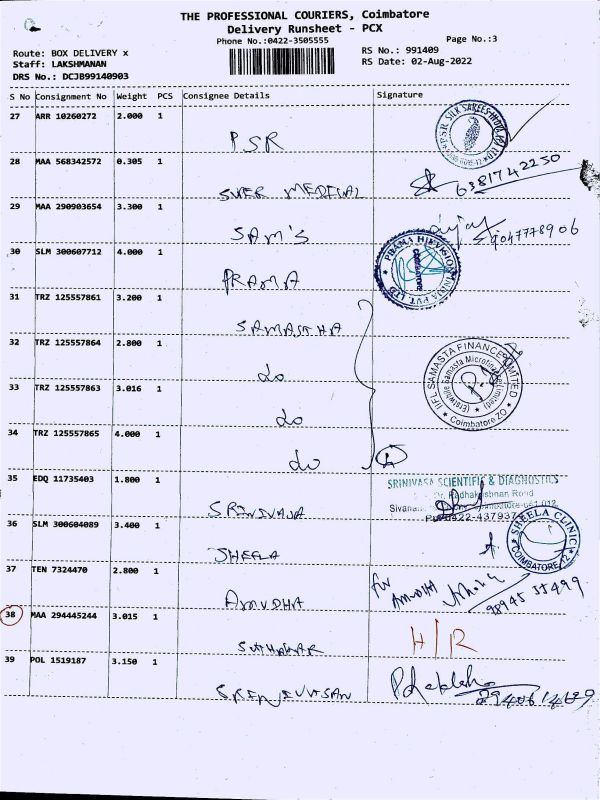 THE PROFESSIONAL COURIERS, Coimbatore
Delivery Runsheet - PCX
Phone No.:0422-3505555
Page No.:3
Route: BOX DELIVERY x
Staff: LAKSHMANAN
DRS No.: DCJB99140903
RS No.: 991409
RS Date: 02-Aug-2022
S No Consignment No Weight PCS Consignee Details Signature
27 ARR 10260272 2.000 1 PSR
P.S.R SILK SAREES INDIA
28 MAA 568342572 0.305 1 SUPER MEDICAL 6381742250
29 MAA 290903654 3.300 1 SAM'S 9047778906
30 SLM 300607712 4.000 1 PRAMA
PRAMA HIKVISION INDIA PVT. LTD
31 TRZ 125557861 3.200 1 SAMASTHA
32 TRZ 125557864 2.800 1 do
IIFL SAMASTA FINANCE LIMITED
(Erstwhile Samasta Microfinance Limited)
Coimbatore ZO
33 TRZ 125557863 3.016 1 do
34 TRZ 125557865 4.000 1 do
35 EDQ 11735403 1.800 1 SRINIVASA
SRINIVASA SCIENTIFIC & DIAGNOSTICS
Dr. Radhakrishnan Road
36 SLM 300604089 3.400 1 SHEELA
SHEELA CLINIC
COIMBATORE-12
37 TEN 7324470 2.800 1 AMUDHA for AMUDHA 98945 35499
38 MAA 294445244 3.015 1 SUTHAKAR H/R
39 POL 1519187 3.150 1